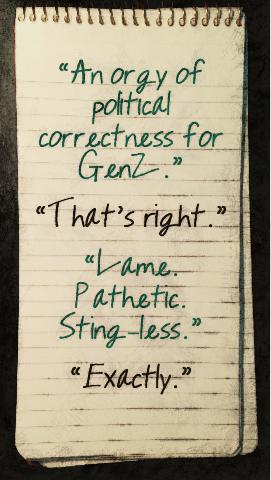 “An orgy of
political
correctness for
GenZ.”
“That’s right.”
“Lame.
Pathetic.
Sting-less.”
“Exactly.”